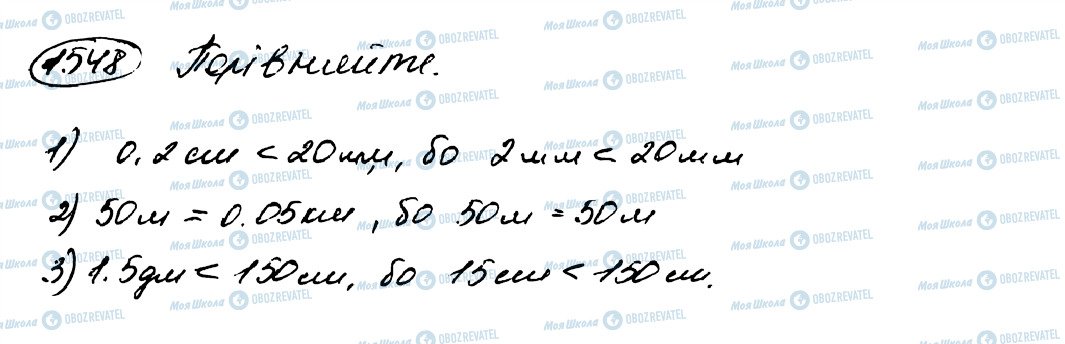 1548 Порівняйте.
1) 0.2 см < 20 мм, бо 2 мм < 20 мм
2) 50 м = 0.05 км, бо 50 м = 50 м
3) 1.5 дм < 150 см, бо 15 см < 150 см.
Моя Школа OBOZREVATEL